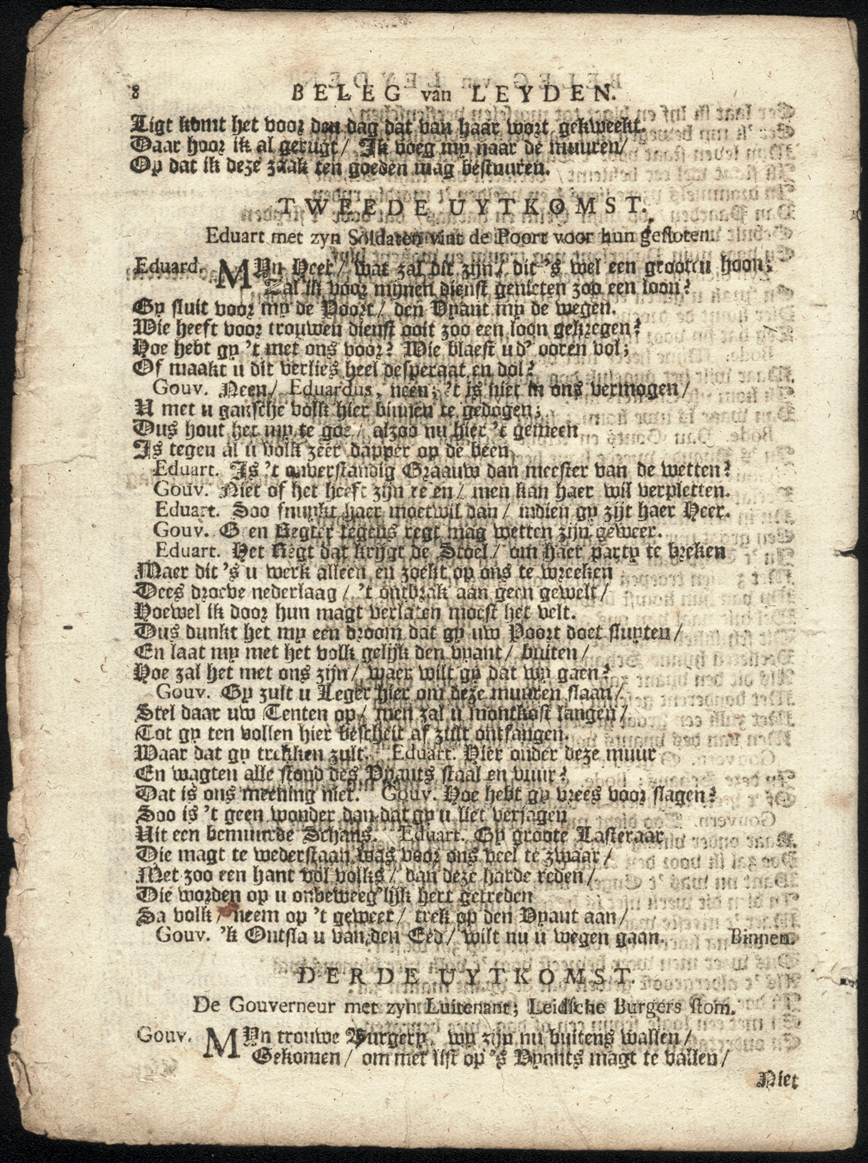 8 BELEG van LEYDEN.
Ligt komt het voor den dag dat van haar wort gekweekt.
Daar hoor ik al gerugt / Ik voeg my naar de muuren /
Op dat ik deze zaak ten goeden mag bestuuren.
TWEEDE UYTKOMST.
Eduart met zyn Soldaten vint de Poort voor hun gesloten.
Eduard. MYn Heer / wat zal dit zijn / dit 's wel een grooten hoon;
Zal ik voor mynen dienst genieten zoo een loon?
Gy sluit voor my de Poort / den Vyant my de wegen.
Wie heeft voor trouwen dienst ooit zoo een loon gekregen?
Hoe hebt gy 't met ons voor? Wie blaest u d' ooren vol;
Of maakt u dit verlies heel desperaat en dol?
Gouv. Neen / Eduardus, neen; 't is niet in ons vermogen /
U met u gansche volk hier binnen te gedogen;
Dus hout het my te goe / alzoo nu hier 't gemeen
Is tegen al u volk zeer dapper op de been.
Eduart. Is 't onverstandig Graauw dan meester van de wetten?
Gouv. Niet of het heeft zijn reen / men kan haer wil verpletten.
Eduart. Soo fnuykt haer moetwil dan / indien gy zijt haer Heer.
Gouv. Geen Regter tegens regt mag wetten zijn geweer.
Eduart. Het Regt dat krijgt de Stoel / om haer party te breken
Maer dit 's u werk alleen en zoekt op ons te wreeken
Dees droeve nederlaag / 't ontbrak aan geen gewelt /
Hoewel ik door hun magt verlaten moest het velt.
Dus dunkt het my een droom dat gy uw Poort doet sluyten /
En laat my met het volk gelijk den vyant / buiten /
Hoe zal het met ons zijn / waer wilt gy dat wy gaen?
Gouv. Gy zult u Leger hier om deze muuren slaan /
Stel daar uw Tenten op / men zal u montkost langen /
Tot gy ten vollen hier bescheit af zult ontfangen.
Waar dat gy trekken zult. Eduart. Hier onder deze muur
En wagten alle stond des Vyants staal en vuur?
Dat is ons meening niet. Gouv. Hoe hebt gy vrees voor slagen?
Soo is 't geen wonder dan dat gy u liet verjagen
Uit een bemuurde Schans. Eduart. Gy groote Lasteraar
Die magt te wederstaan was voor ons veel te zwaar /
Met zoo een hant vol volks / dan deze harde reden /
Die worden op u onbeweeg'lijk hert getreden
Sa volk / neem op 't geweer / trek op den Vyant aan /
Gouv. 'k Ontsla u van den Eed / wilt nu u wegen gaan. Binnen.
DERDE UYTKOMST
De Gouverneur met zyn Luitenant; Leidsche Burgers stom.
Gouv. MYn trouwe Burgery, wy zijn nu buitens wallen /
Gekomen / om met list op 's Vyants magt te vallen /
Niet